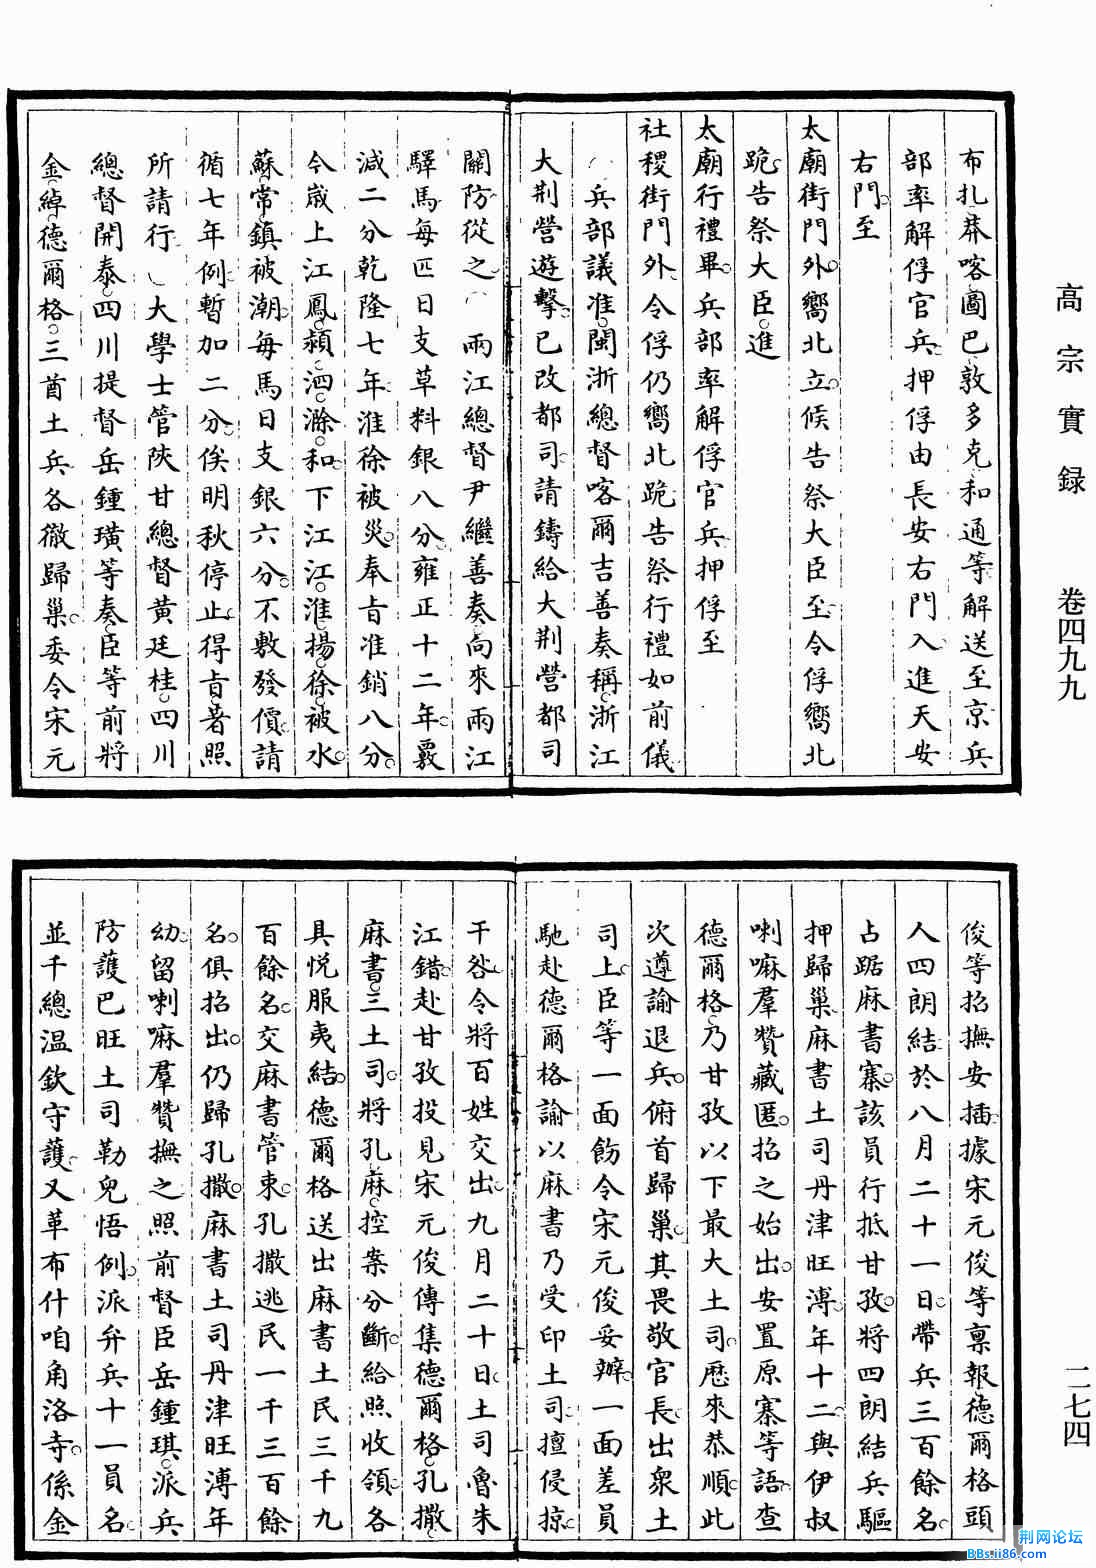 高宗實録 卷四九九 二七四
布扎莽喀圖巴敦多克和通等解送至京兵
部率解俘官兵押俘由長安右門入進天安
右門至
太廟街門外嚮北立候告祭大臣至令俘嚮北
跪告祭大臣進
太廟行禮畢兵部率解俘官兵押俘至
社稷街門外令俘仍嚮北跪告祭行禮如前儀
○兵部議准閩浙總督喀爾吉善奏稱浙江
大荆營遊擊已改都司請鑄給大荆營都司
關防從之○兩江總督尹繼善奏向來兩江
驛馬每匹日支草料銀八分雍正十二年覈
減二分乾隆七年淮徐被災奉旨准銷八分
今歲上江鳳潁泗滁和下江江淮揚徐被水
蘇常鎮被潮每馬日支銀六分不敷發價請
循七年例暫加二分俟明秋停止得旨著照
所請行○大學士管陝甘總督黃廷桂四川
總督開泰四川提督岳鍾璜等奏臣等前將
金綽德爾格三酋土兵各徹歸巢委令宋元
俊等招撫安插據宋元俊等稟報德爾格頭
人四朗結於八月二十一日帶兵三百餘名
占踞麻書寨該員行抵甘孜將四朗結兵驅
押歸巢麻書土司丹津旺溥年十二與伊叔
喇嘛羣贊藏匿招之始出安置原寨等語查
德爾格乃甘孜以下最大土司歷來恭順此
次遵諭退兵俯首歸巢其畏敬官長出衆土
司上臣等一面飭令宋元俊妥辦一面差員
馳赴德爾格諭以麻書乃受印土司擅侵掠
干咎令將百姓交出九月二十日土司魯朱
江錯赴甘孜投見宋元俊傳集德爾格孔撒
麻書三土司將孔麻控案分斷給照收領各
具悅服夷結德爾格送出麻書土民三千九
百餘名交麻書管束孔撒逃民一千三百餘
名俱招出仍歸孔撒麻書土司丹津旺溥年
幼留喇嘛羣贊撫之照前督臣岳鍾琪派兵
防護巴旺土司勒兒悟例派弁兵十一員名
並千總溫欽守護又革布什咱角洛寺係金
荆网论坛
BBs.ii86.com